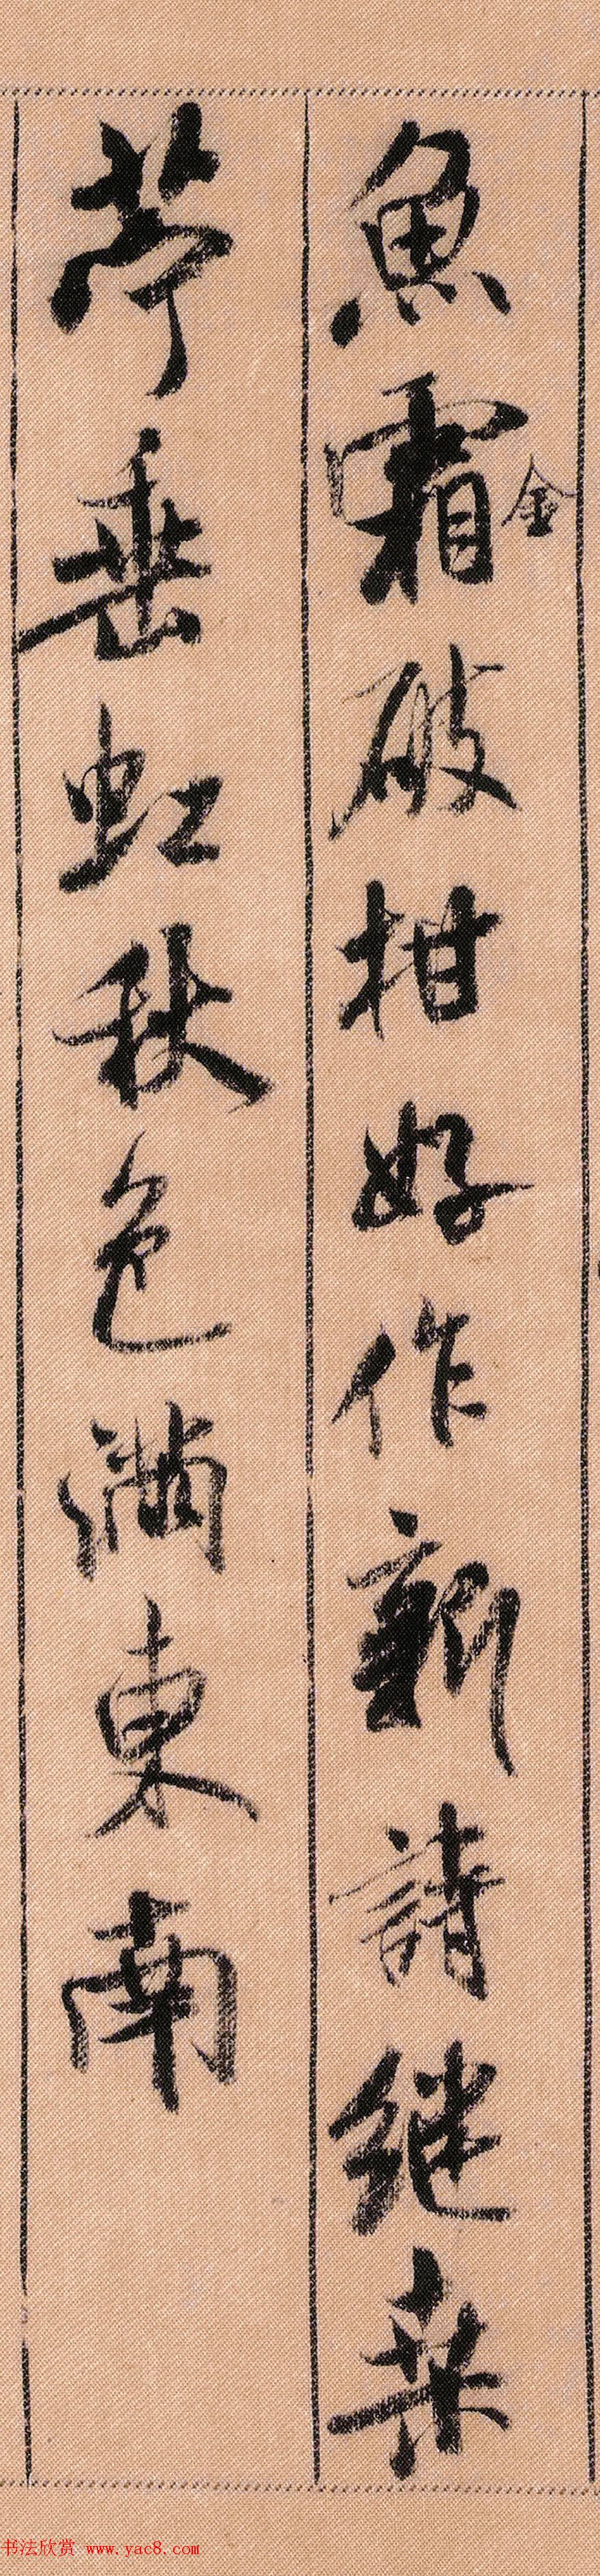 魚霜破柑好作新詩繼桑
金
苧垂虹秋色滿東南
书法欣赏 www.yac8.com